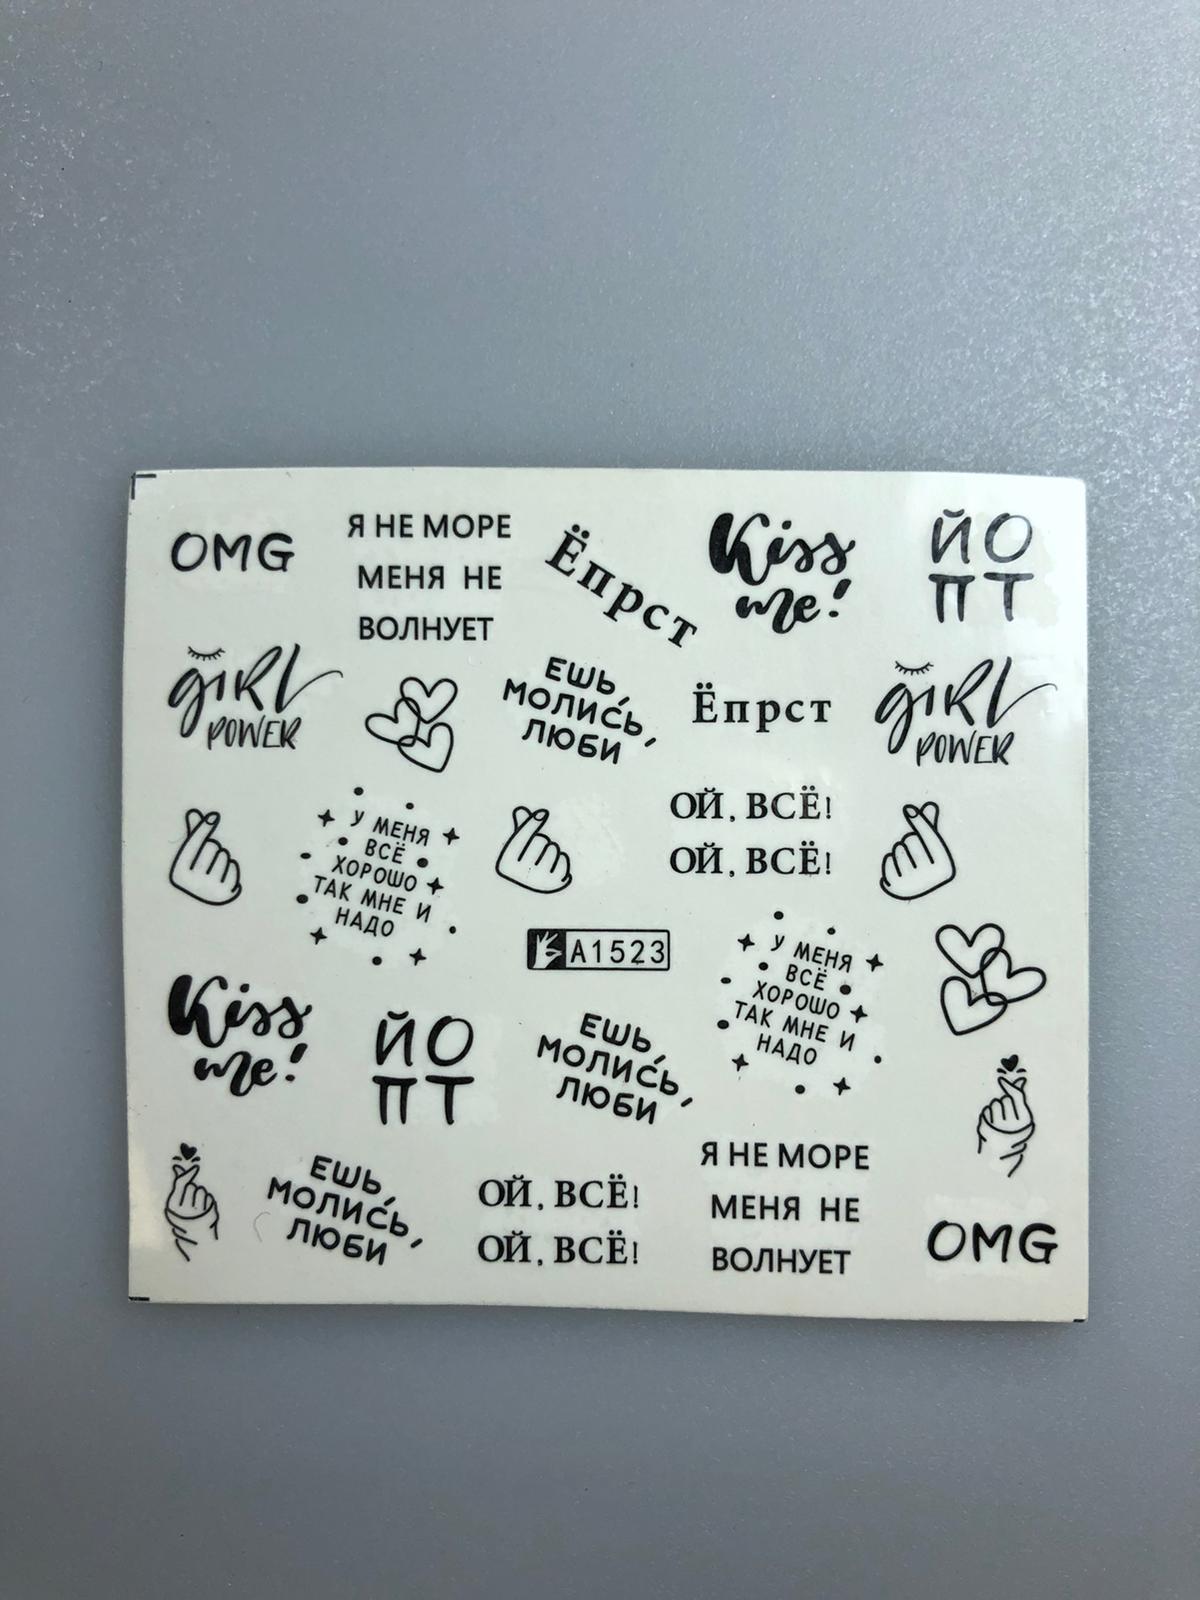 OMG
Я НЕ МОРЕ
МЕНЯ НЕ
ВОЛНУЕТ
Ёпрст
Kiss
me!
ЙО
ПТ
girl
POWER
ЕШЬ,
МОЛИСЬ,
ЛЮБИ
Ёпрст
girl
POWER
У МЕНЯ
ВСЁ
ХОРОШО
ТАК МНЕ И
НАДО
ОЙ, ВСЁ!
ОЙ, ВСЁ!
A1523
У МЕНЯ
ВСЁ
ХОРОШО
ТАК МНЕ И
НАДО
Kiss
me!
ЙО
ПТ
ЕШЬ,
МОЛИСЬ,
ЛЮБИ
ЕШЬ,
МОЛИСЬ,
ЛЮБИ
ОЙ, ВСЁ!
ОЙ, ВСЁ!
Я НЕ МОРЕ
МЕНЯ НЕ
ВОЛНУЕТ
OMG